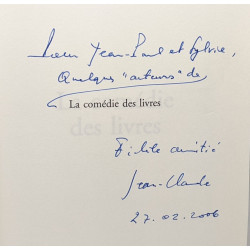 Pour Jean-Paul et Sylvie,
Quelques "auteurs" de
La comédie des livres
Fidèle amitié
Jean-Claude
27.02.2006